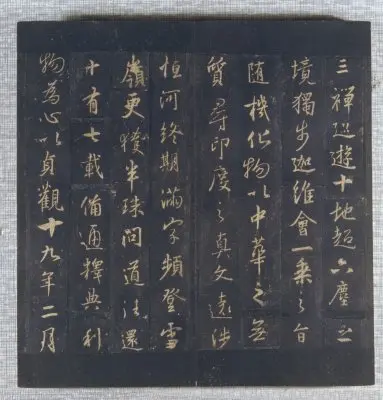 三禪巡遊十地超六塵之
境獨步迦維會一乘之旨
随機化物以中華之無
質尋印度之真文遠涉
恒河終期滿字頻登雪
嶺更獲半珠問道往還
十有七載備通釋典利
物為心以貞觀十九年二月